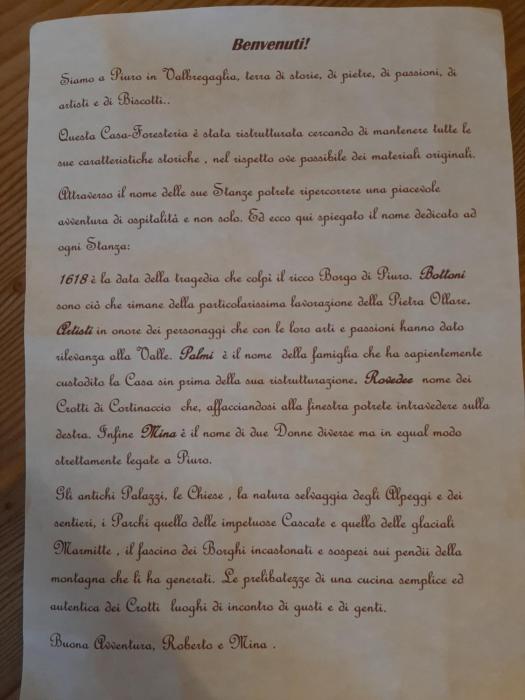 Benvenuti!
Siamo a Piuro in Valbregaglia, terra di storie, di pietre, di passioni, di
artisti e di Biscotti..
Questa Casa-Foresteria è stata ristrutturata cercando di mantenere tutte le
sue caratteristiche storiche , nel rispetto ove possibile dei materiali originali.
Attraverso il nome delle sue Stanze potrete ripercorrere una piacevole
avventura di ospitalità e non solo. Ed ecco qui spiegato il nome dedicato ad
ogni Stanza:
1618 è la data della tragedia che colpì il ricco Borgo di Piuro. Bottoni
sono ciò che rimane della particolarissima lavorazione della Pietra Ollare.
Artisti in onore dei personaggi che con le loro arti e passioni hanno dato
rilevanza alla Valle. Palmi è il nome della famiglia che ha sapientemente
custodito la Casa sin prima della sua ristrutturazione. Rovedee nome dei
Crotti di Cortinaccio che, affacciandosi alla finestra potrete intravedere sulla
destra. Infine Mina è il nome di due Donne diverse ma in egual modo
strettamente legate a Piuro.
Gli antichi Palazzi, le Chiese , la natura selvaggia degli Alpeggi e dei
sentieri, i Parchi quello delle impetuose Cascate e quello delle glaciali
Marmitte , il fascino dei Borghi incastonati e sospesi sui pendii della
montagna che li ha generati. Le prelibatezze di una cucina semplice ed
autentica dei Crotti luoghi di incontro di gusti e di genti.
Buona Avventura, Roberto e Mina .